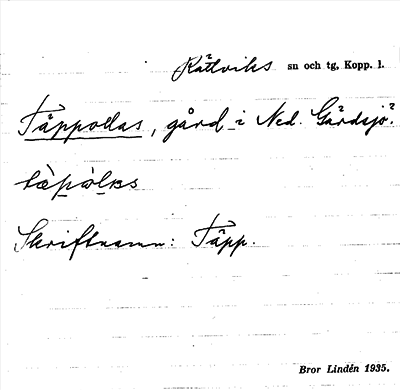 Rättviks sn och tg, Kopp. l.
Täppollas, gård i Ned. Gärdsjö.
Skriftnamn: Täpp.
Bror Lindén 1935.